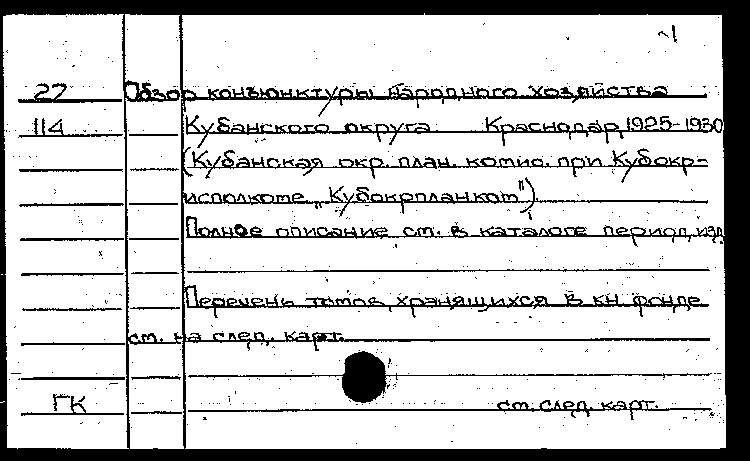 1
27 Обзор конъюнктуры народного хозяйства
114 Кубанского округа. Краснодар, 1925-1930
(Кубанская окр. план. комис. при Кубокр-
исполкоме „Кубокрпланком")
Полное описание см. в каталоге период. изд.
Перечень томов, хранящихся в кн. фонде
см. на след. карт.
ГК см. след. карт.